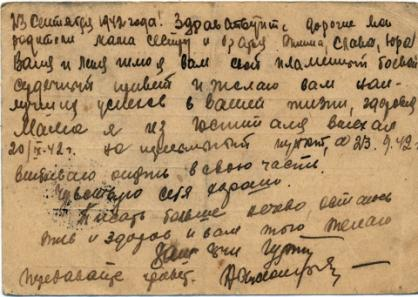 23 Сентября 1942 года! Здравствуйте, дорогие мои
родители мама сестры и братья Слава, Юра
Ваня и Леня шлю я вам свой пламенный боевой
сердечный привет и желаю вам
успехов в вашей жизни, здоровья
Мама я из госпиталя выехал
20/IX-42г. на пункт, а 23.9.42г.
опять в свою часть.
Чувствую себя хорошо.
Писать больше нечего, остаюсь
жив и здоров и вам того желаю
Ваш
Передавайте привет.